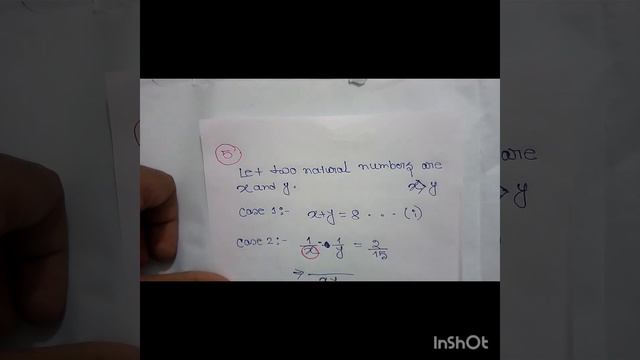 5
Let two natural numbers are
x and y. x>y
case 1:- x+y = 8 . . . (i)
case 2:- 1/x - 1/y = 2/15
⇒
are
> y
InShOt